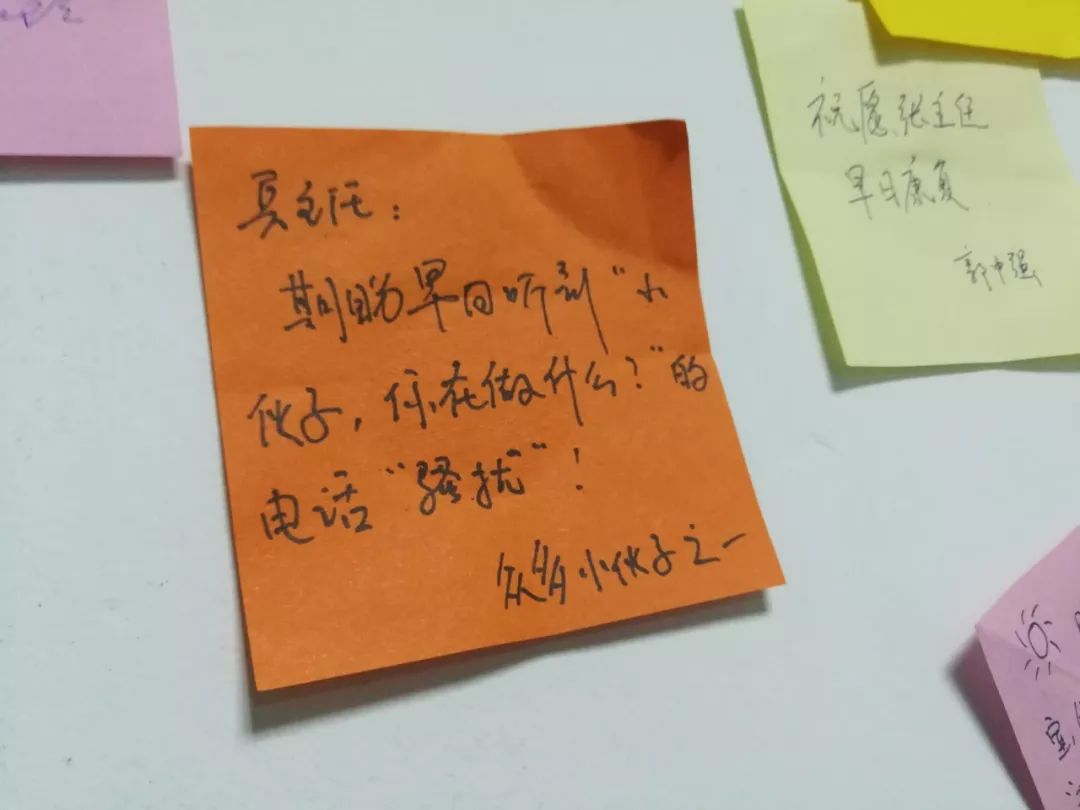 主任：
期盼早日听到“小
伙子，你在做什么？”的
电话“骚扰”！
众多小伙子之一
祝愿张主任
早日康复
郭中强